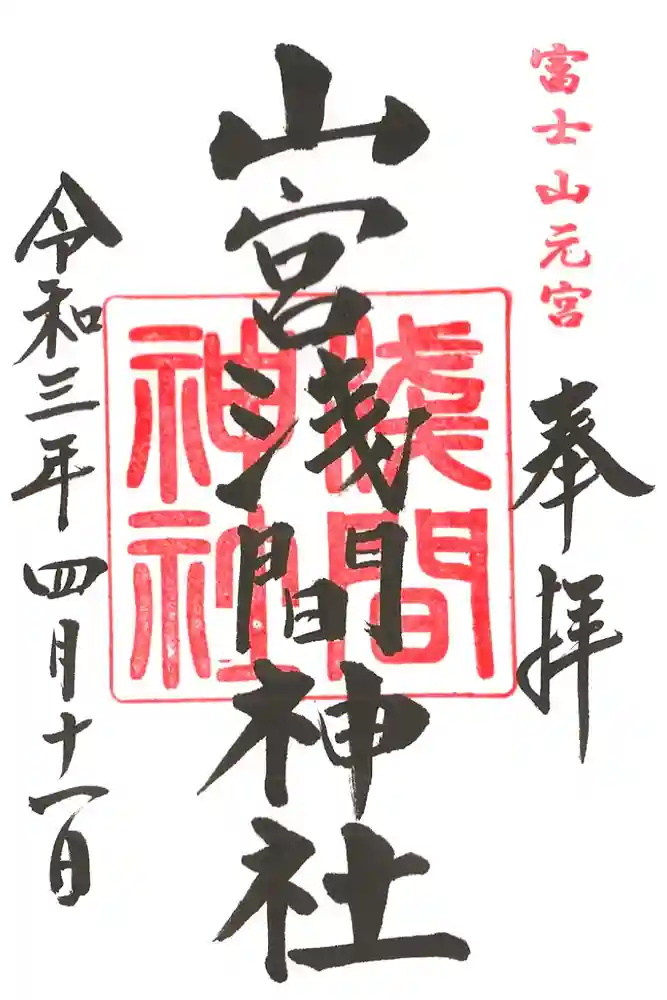 富士山元宮
奉拝
山宮浅間神社
淺間神社
令和三年四月十一日